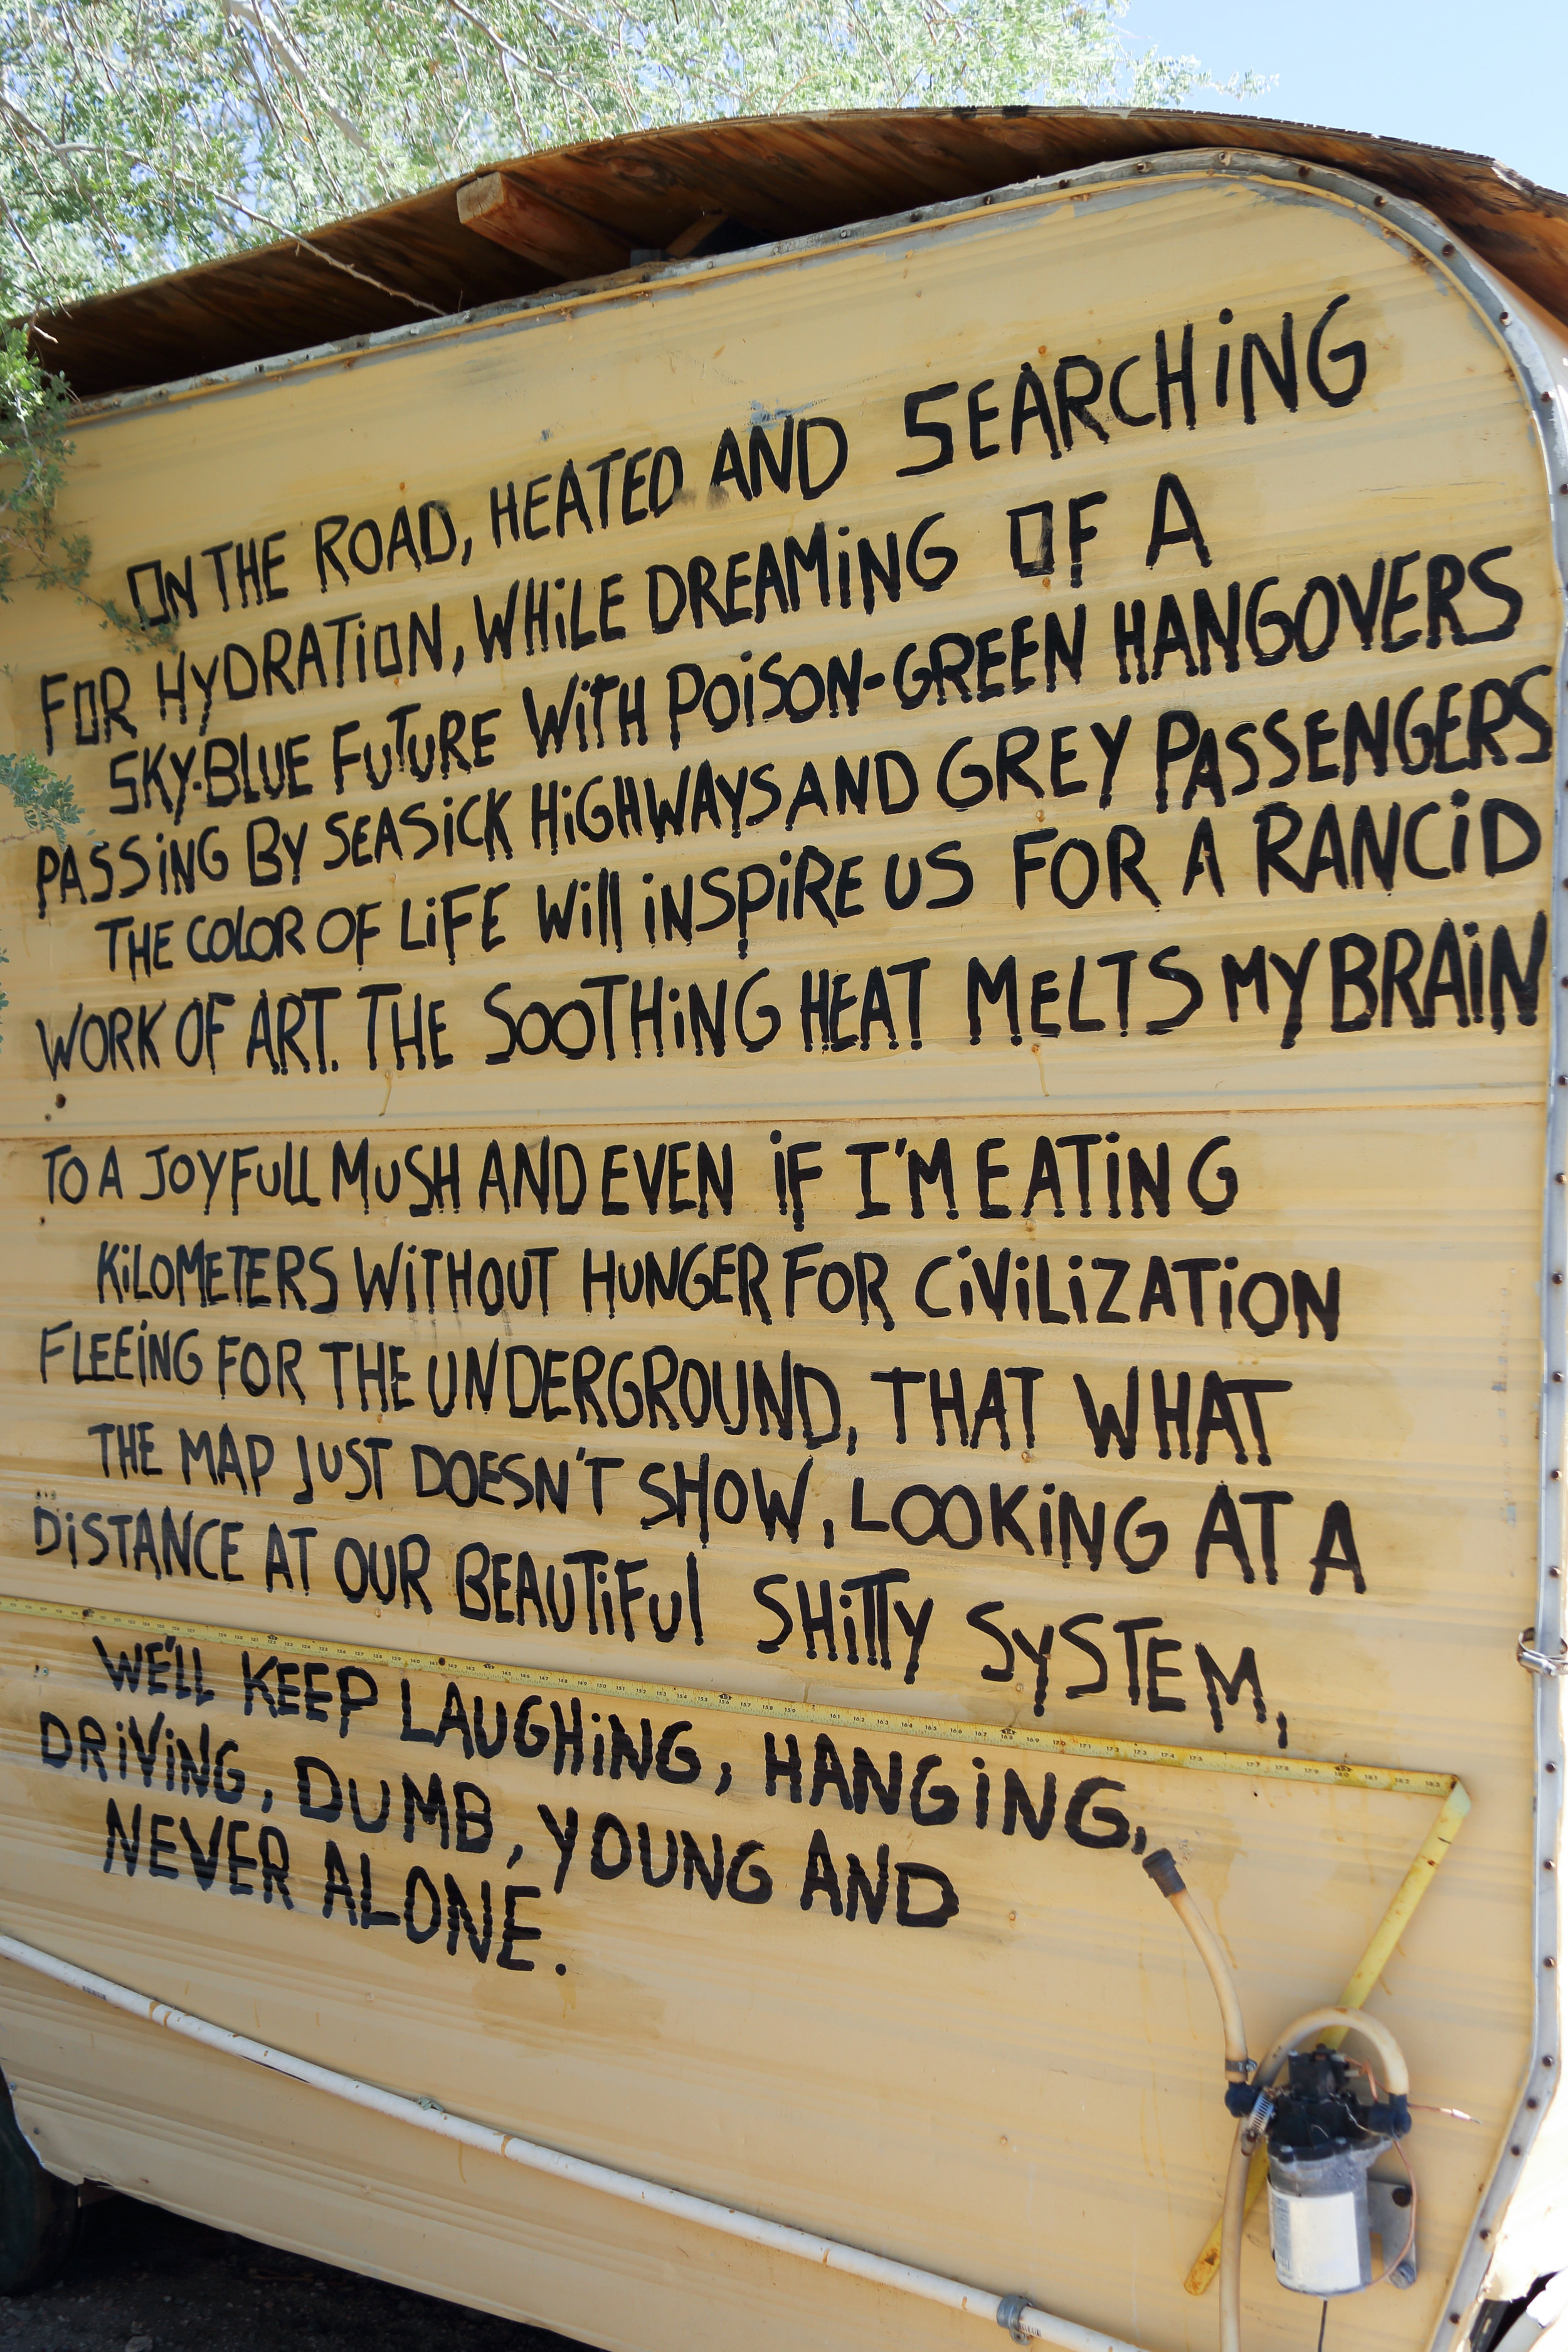 ON THE ROAD, HEATED AND SEARCHING
FOR HYDRATiON, WHiLE DREAMiNG OF A
SKY-BLUE FUTURE WiTH POiSON-GREEN HANGOVERS
PASSiNG BY SEASiCK HiGHWAYS AND GREY PASSENGERS
THE COLOR OF LiFE Will iNSPiRE US FOR A RANCiD
WORK OF ART. THE SOOTHiNG HEAT MELTS MY BRAiN
TO A JOYFULL MUSH AND EVEN iF I'M EATiNG
KiLOMETERS WiTHOUT HUNGER FOR CiViLiZATiON
FLEEiNG FOR THE UNDERGROUND, THAT WHAT
THE MAP JUST DOESN'T SHOW, LOOKiNG AT A
DiSTANCE AT OUR BEAUTiFUl SHiTTY SYSTEM,
WE'LL KEEP LAUGHiNG, HANGiNG,
DRiViNG, DUMB, YOUNG AND
NEVER ALONE.